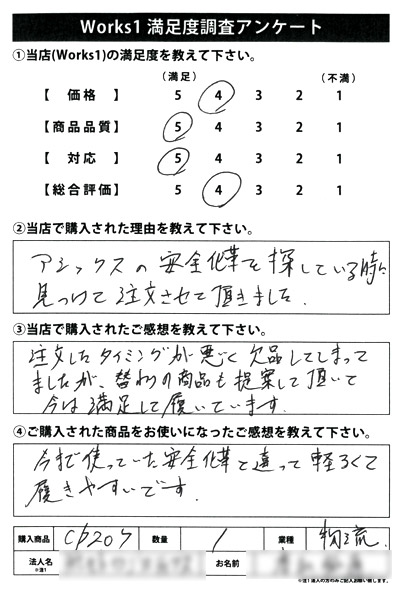 Works1 満足度調査アンケート
①当店(Works1)の満足度を教えて下さい。
(満足) (不満)
【 価格 】 5 4 3 2 1
【商品品質】 5 4 3 2 1
【 対応 】 5 4 3 2 1
【総合評価】 5 4 3 2 1
②当店で購入された理由を教えて下さい。
アシックスの安全化革を探している時に
見つけて注文させて頂きました.
③当店で購入されたご感想を教えて下さい。
注文したタイミングが悪く欠品してしまって
ましたが、替わりの商品も提案して頂いて
今は満足して履いています.
④ご購入された商品をお使いになったご感想を教えて下さい。
今まで使っていた安全化革と違って軽るくて
履きやすいです.
購入商品 CP207 数量 1 業種 物流.
法人名 お名前
※注1
※注1 法人の方のみご記入お願い致します。